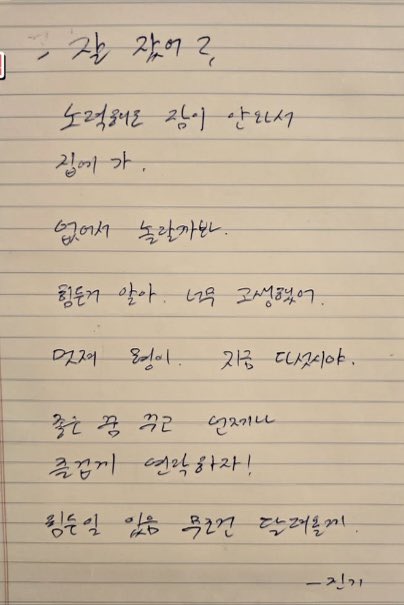 잘 잤어?
노력해도 잠이 안와서
집에 가.
없어서 놀랄까봐.
힘든거 알아. 너무 고생했어.
멋져 형이. 지금 다섯시야.
좋은 꿈 꾸고 언제나
즐겁게 연락하자!
힘든일 있음 무조건 달려올게.
- 진기